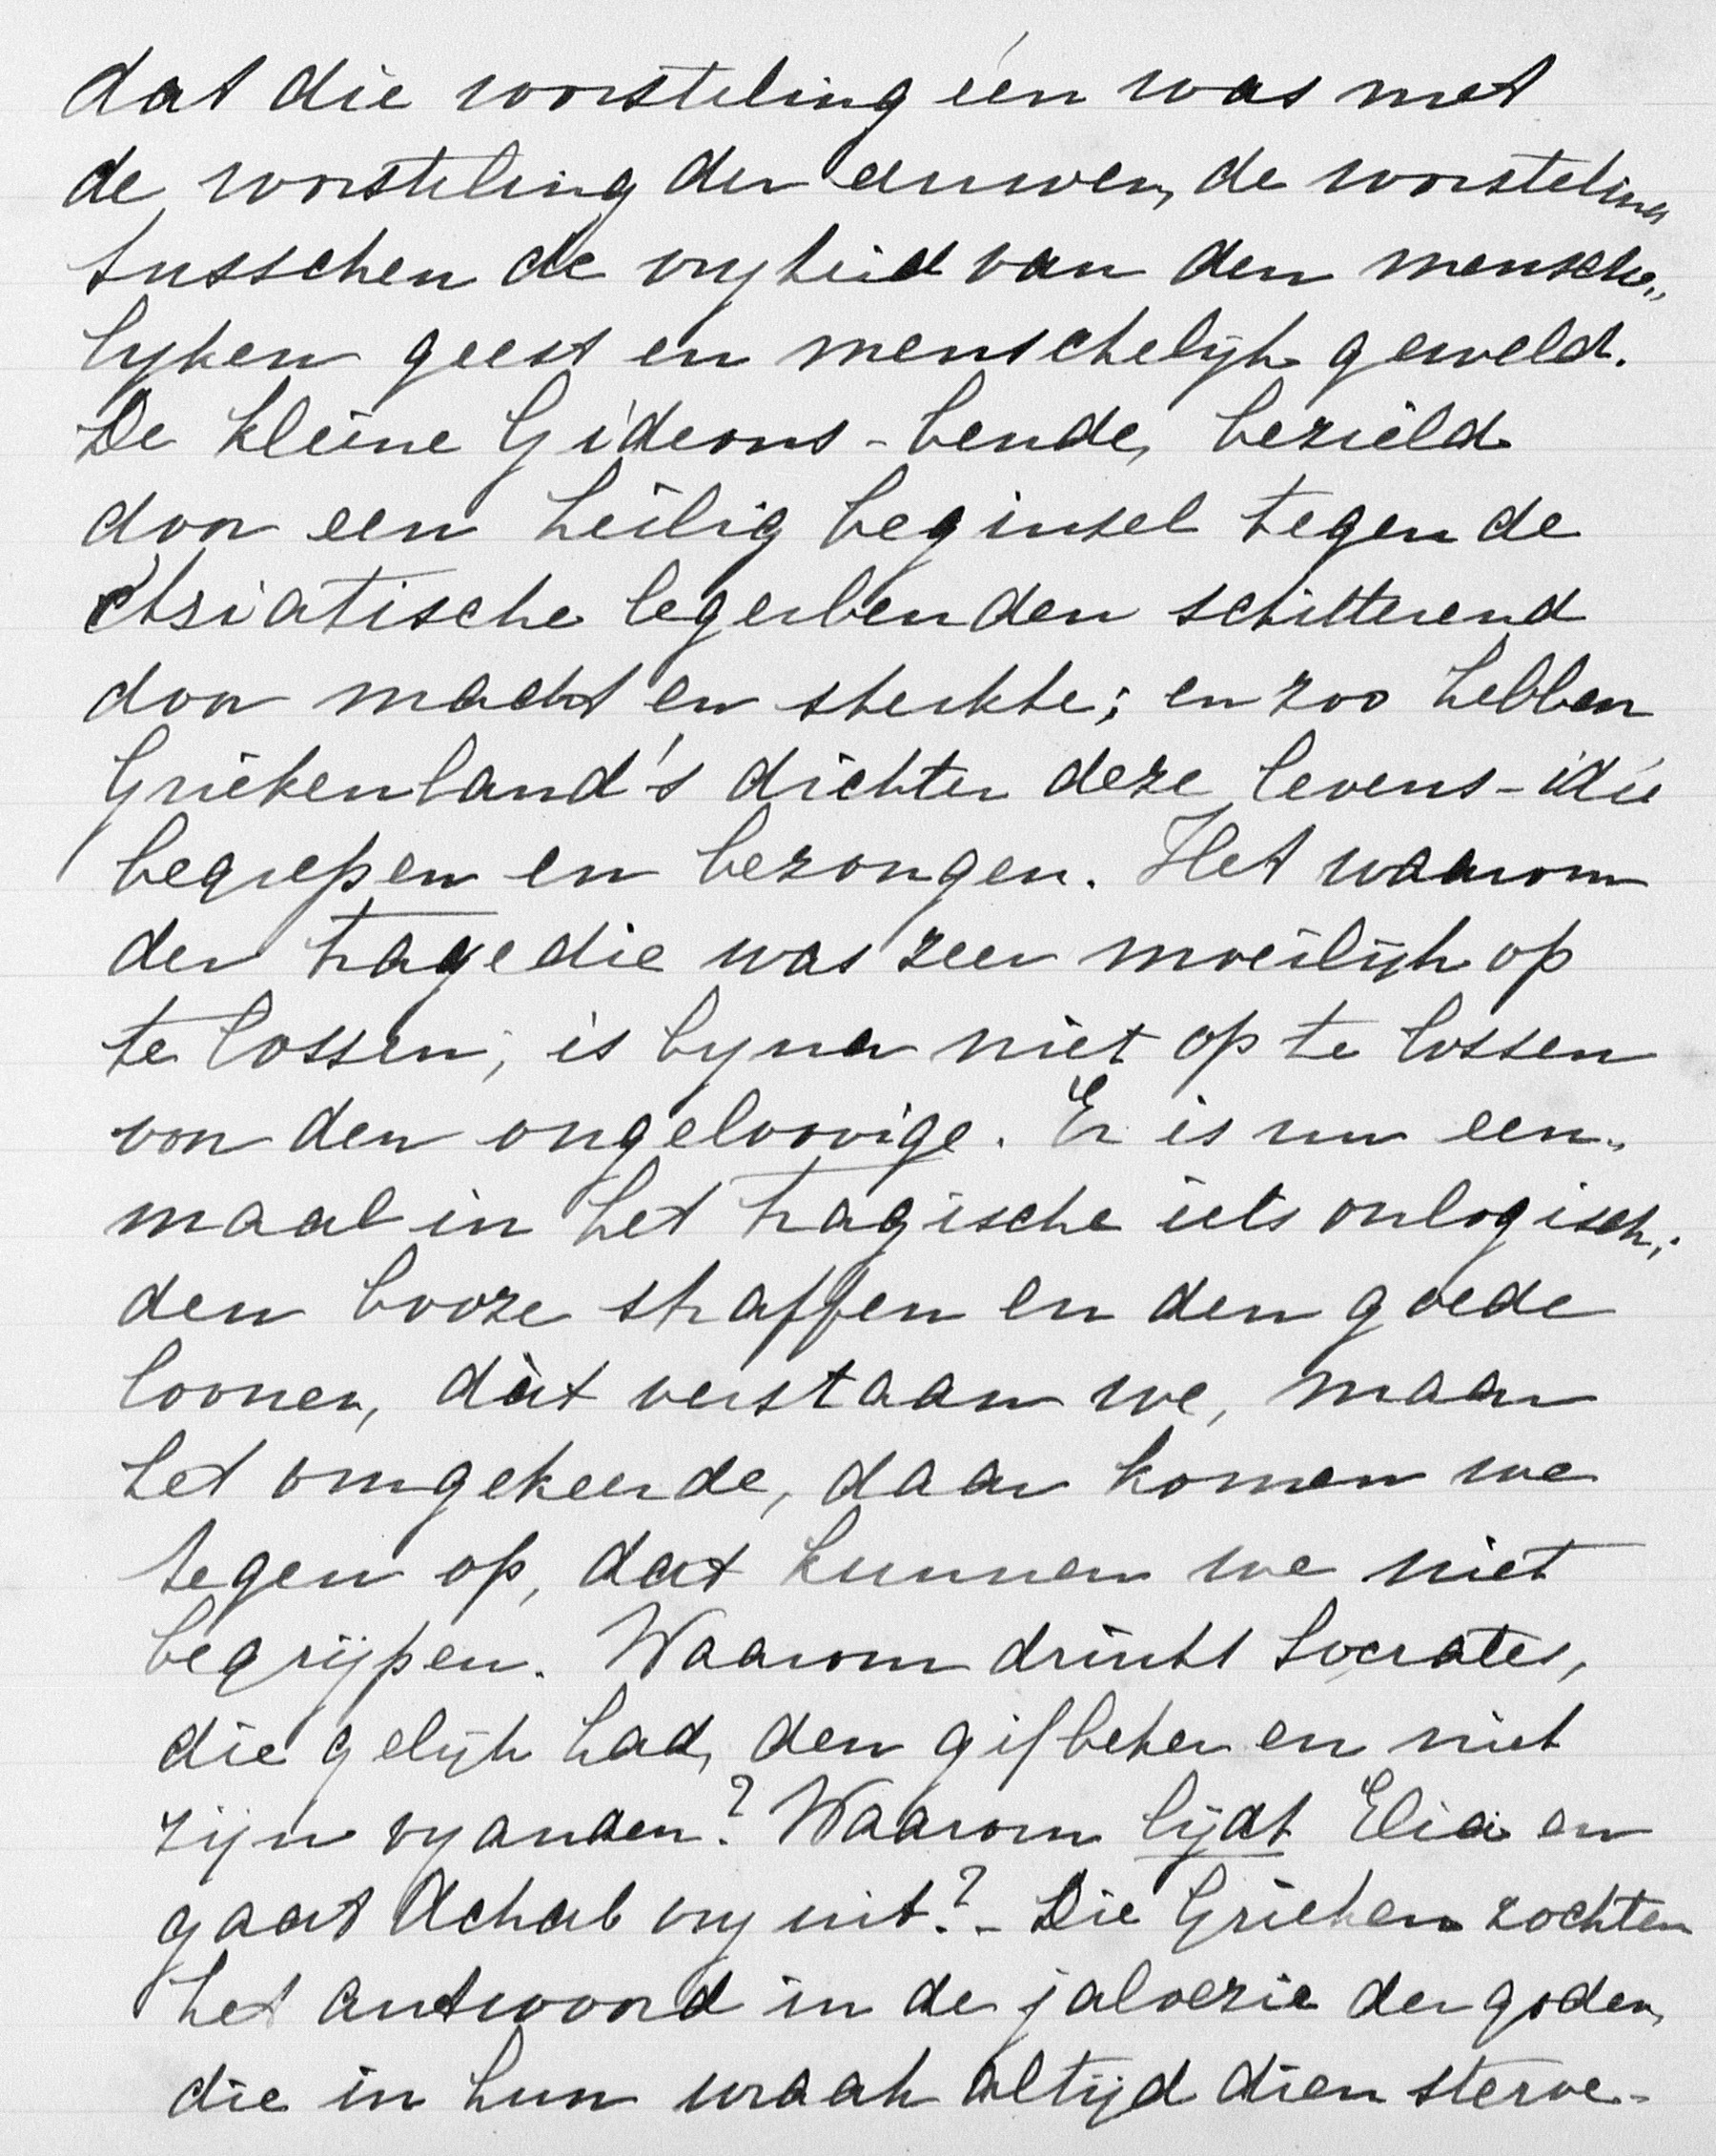 dat die worsteling één was met
de worsteling der eeuwen, de worsteling
tusschen de vryheid van den mensche„
lyken geest en menschelijk geweld.
De kleine Gideons-bende, bezield
door een heilig beginsel tegen de
Asiatische legerbenden schitterend
door macht en sterkte; en zoo hebben
Griekenland's dichter deze levens-idée
begrepen en bezongen. Het waarom
der tragedie was zeer moeilijk op
te lossen, is byna niet op te lossen
voor den ongeloovige. Er is nu een„
maal in het tragische iets onlogisch;
den booze straffen en den goede
loonen, dàt verstaan we, maar
het omgekeerde, daar komen we
tegen op, dat kunnen we niet
begrijpen. Waarom drinkt Socrates,
die gelijk had, den gifbeker en niet
zijn vyanden? Waarom lijdt Elia en
gaat Achab vry uit? – Die Grieken zochten
het antwoord in de jaloezie der goden,
die in hun wraak altijd dien sterve-